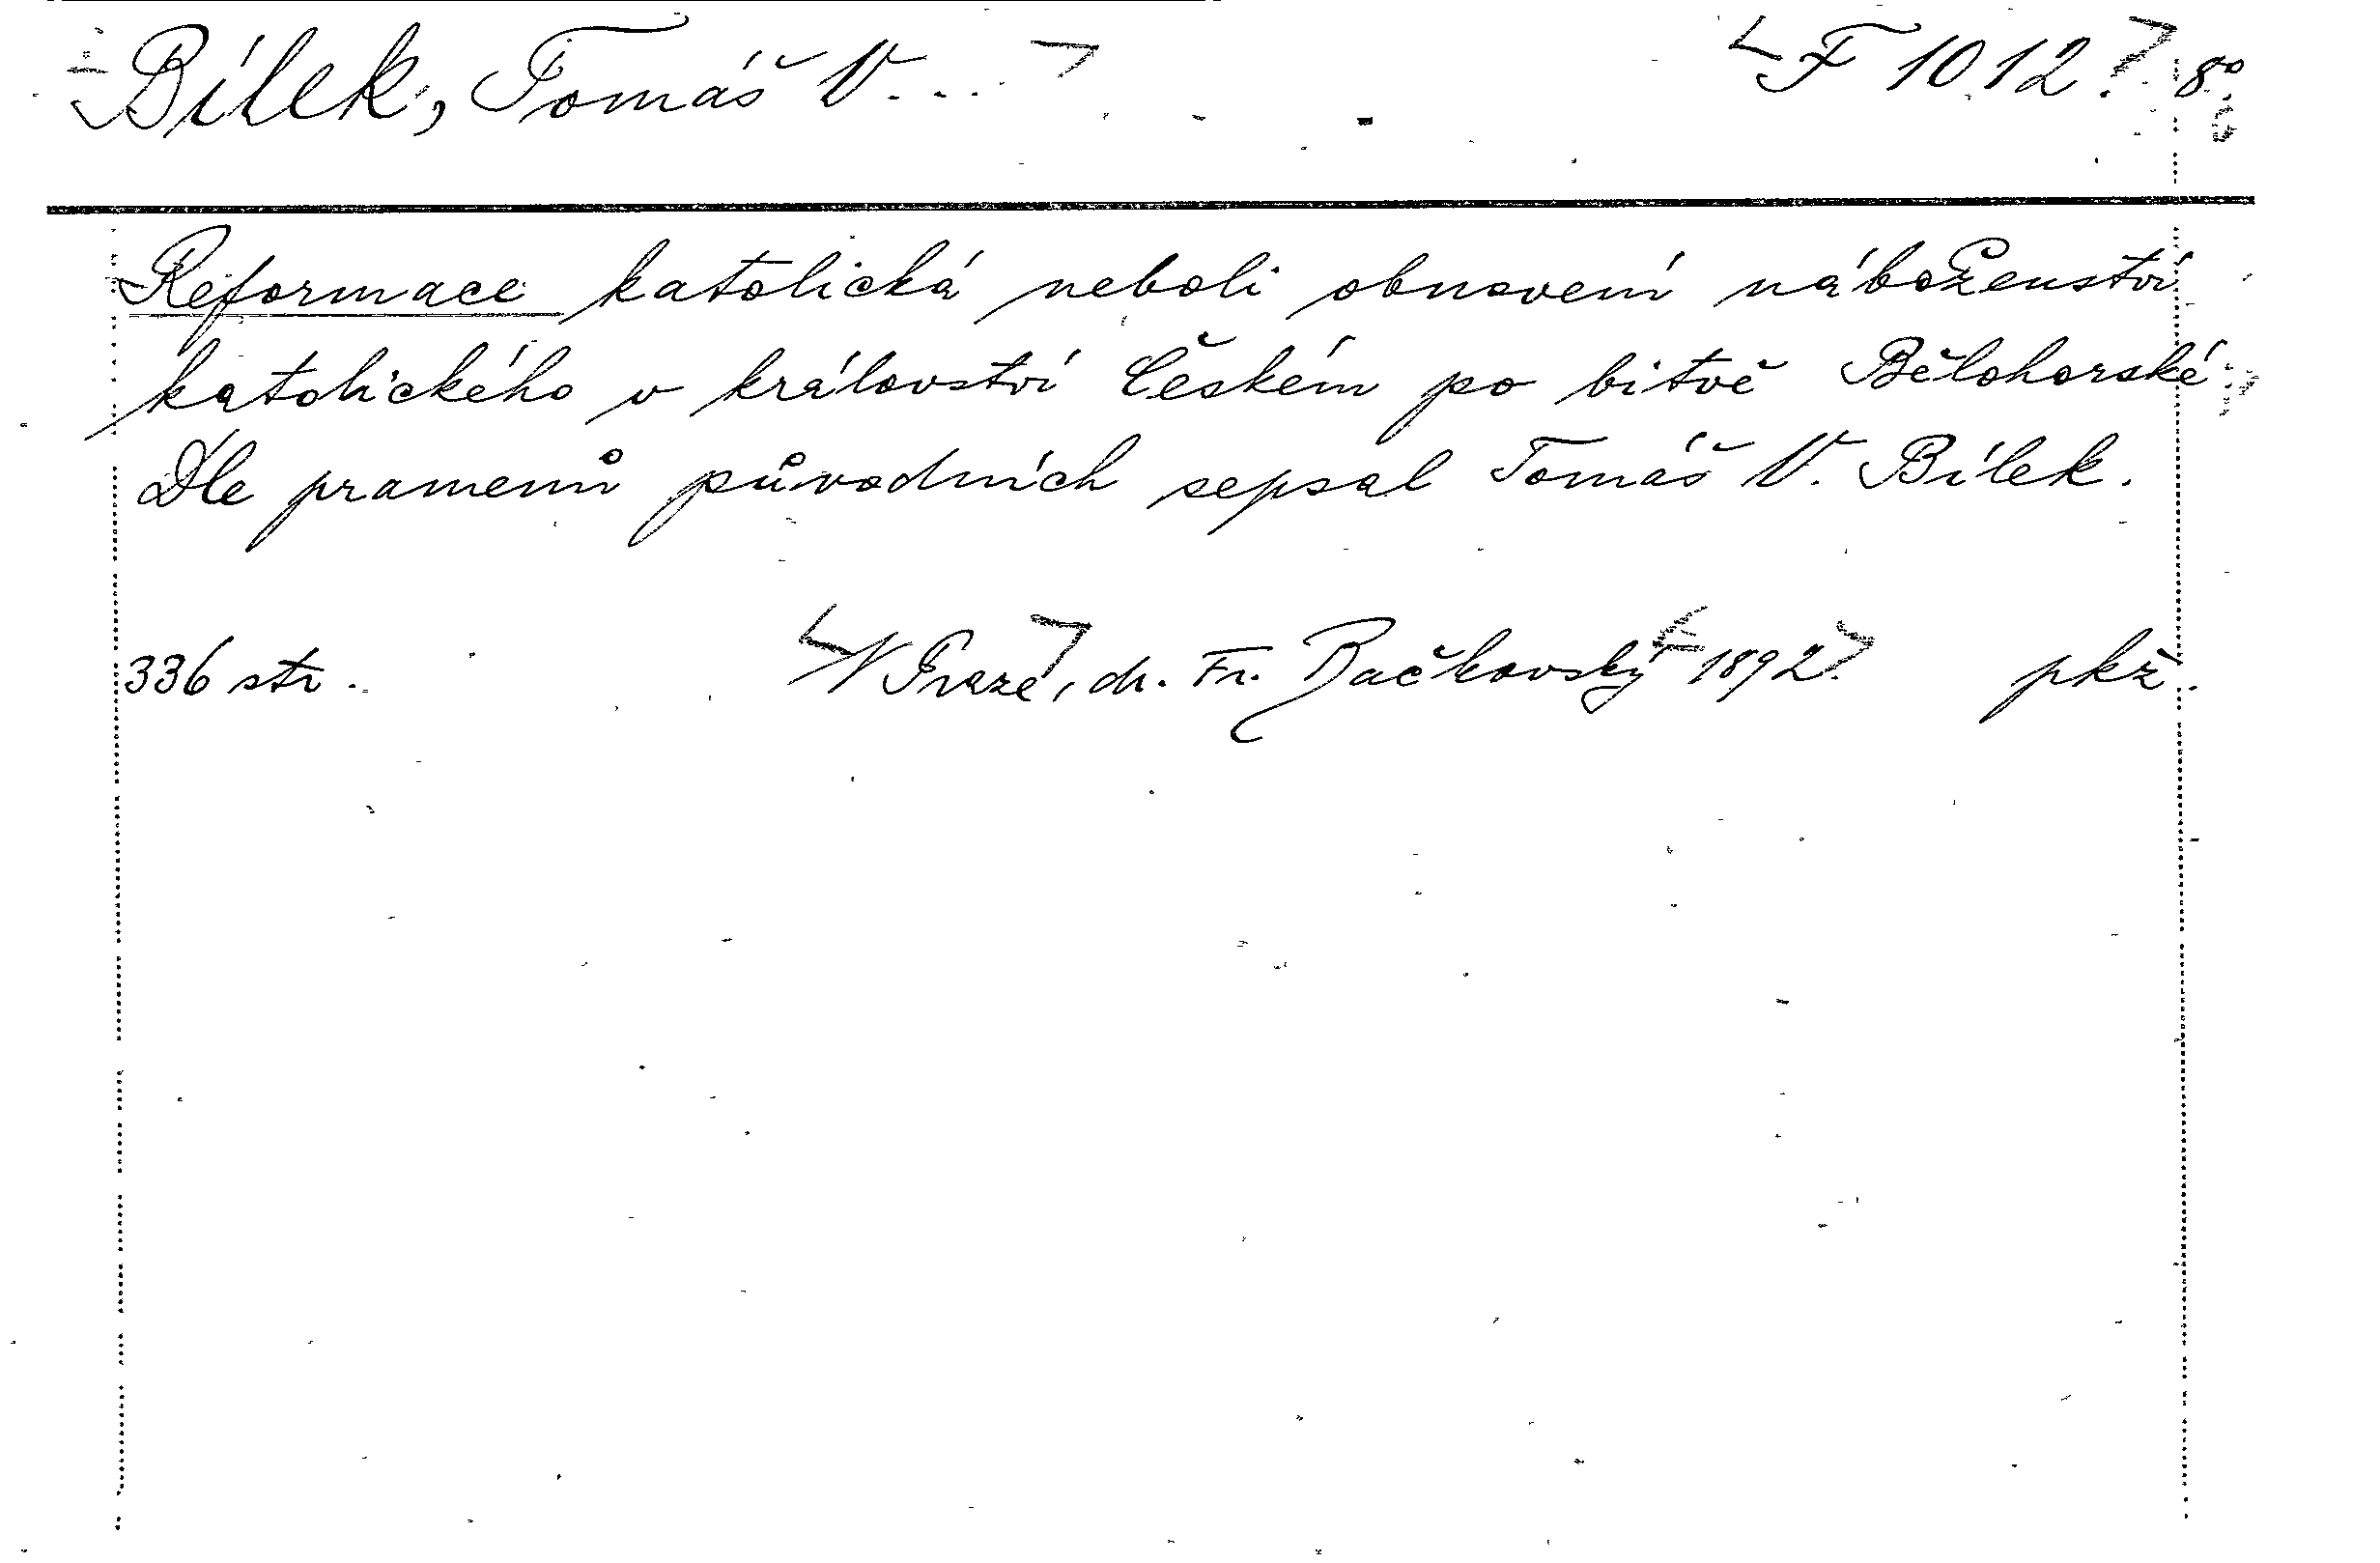 Bílek, Tomáš V... F 1012. 8°.
Reformace katolická neboli obnovení náboženství
katolického v království Českém po bitvě Bělohorské.
Dle pramenů původních sepsal Tomáš V. Bílek.
336 str. V Praze, dr. Fr. Bačkovský 1892. pkž.